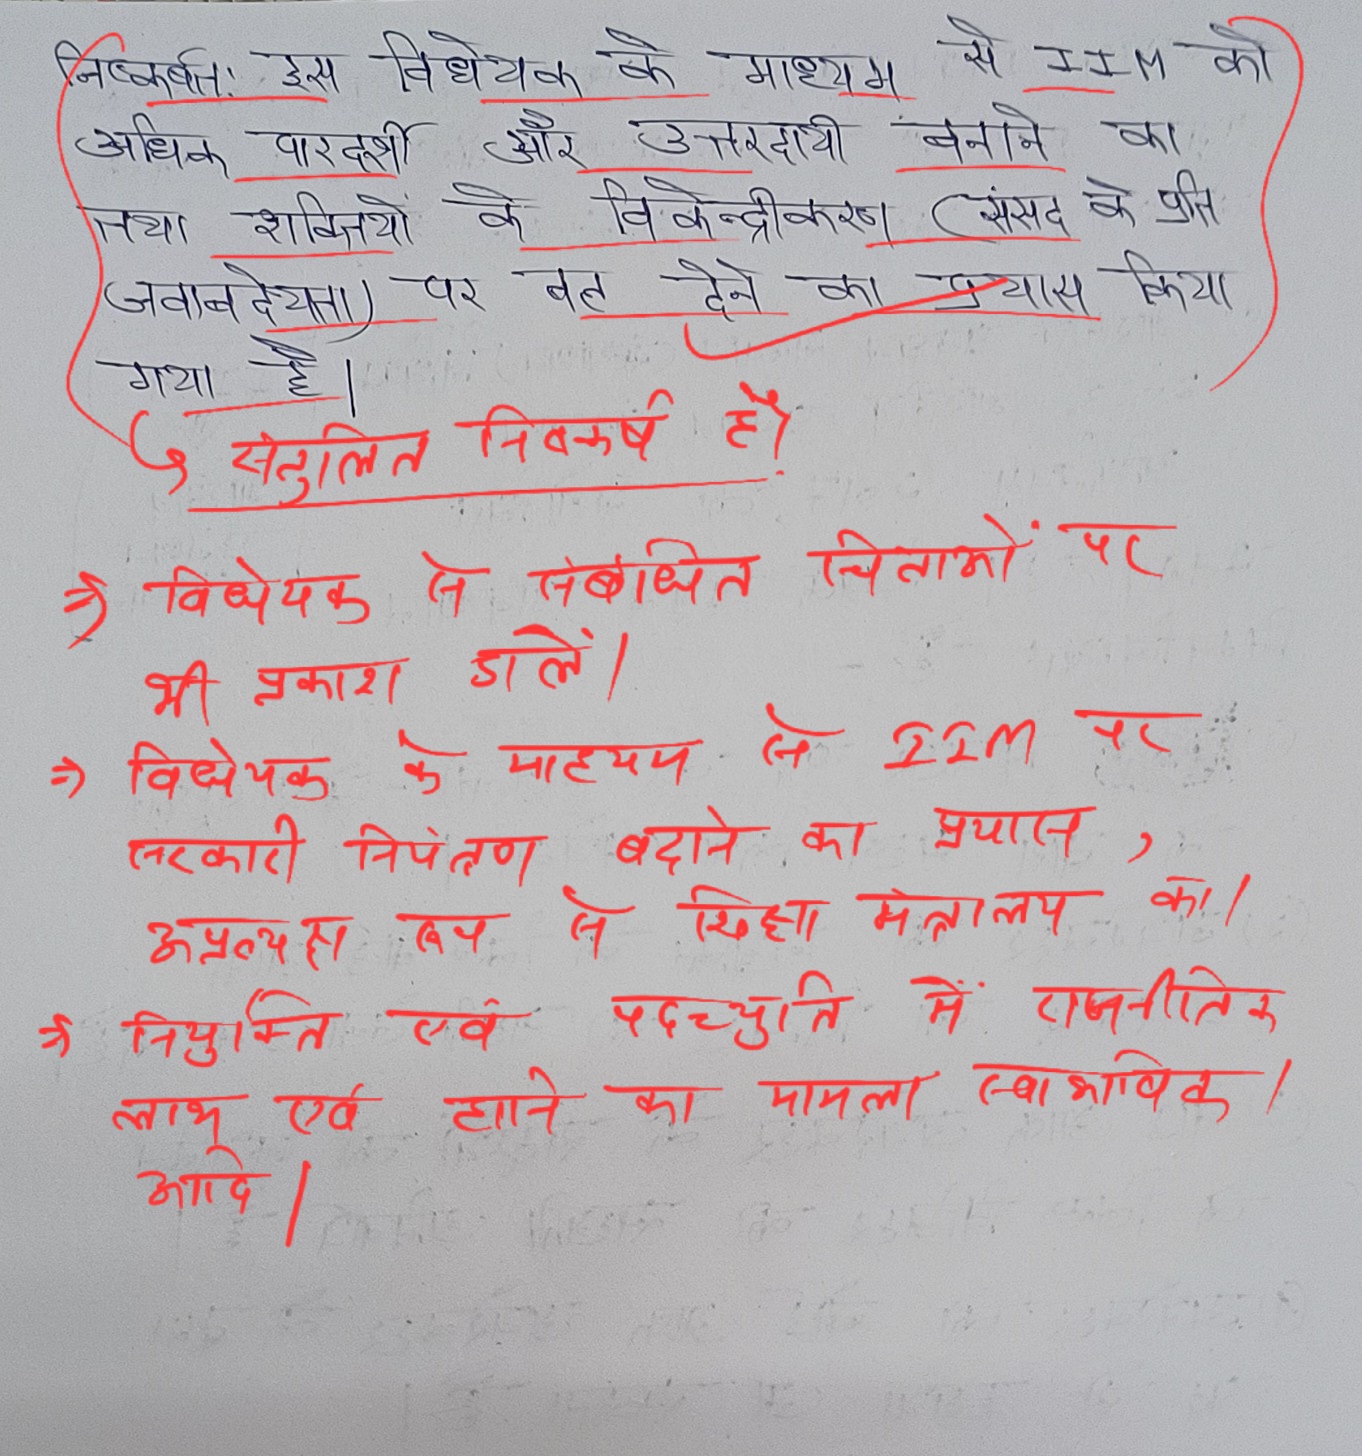 निष्कर्षत: इस विधेयक के माध्यम से IIM को
अधिक पारदर्शी और उत्तरदायी बनाने का
तथा शक्तियों के विकेन्द्रीकरण (संसद के प्रति
जवाबदेयता) पर बल देने का प्रयास किया
गया है।
संतुलित निष्कर्ष है।
⇒ विधेयक से संबंधित चिंताओं पर
भी प्रकाश डालें।
⇒ विधेयक के माध्यम से IIM पर
सरकारी नियंत्रण बढ़ाने का प्रयास,
अप्रत्यक्ष रूप से शिक्षा मंत्रालय का।
⇒ नियुक्ति एवं पदच्युति में राजनीतिक
लाभ एवं हानि का मामला स्वाभाविक।
आदि।